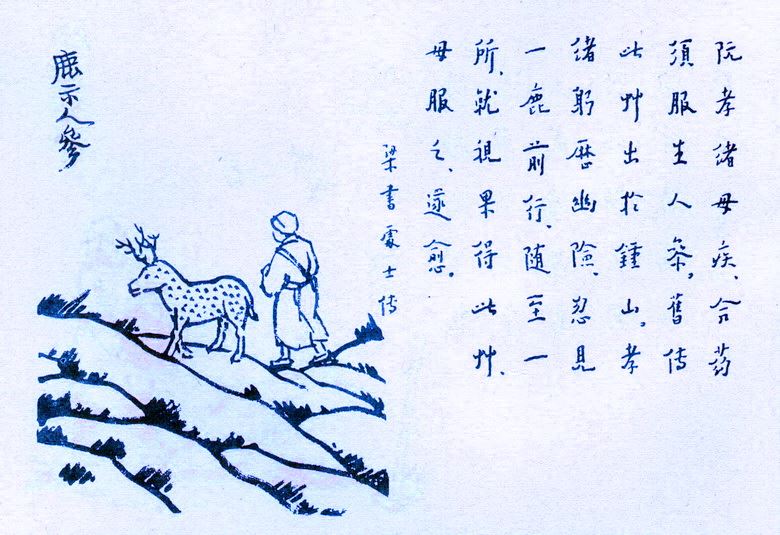 阮孝绪母疾、合药
須服生人参。舊传
此艸出於鍾山。孝
绪躬歷幽險、忽見
一鹿前行、随至一
所、就視果得此艸、
母服之、遂愈。
梁書處士传
鹿示人參